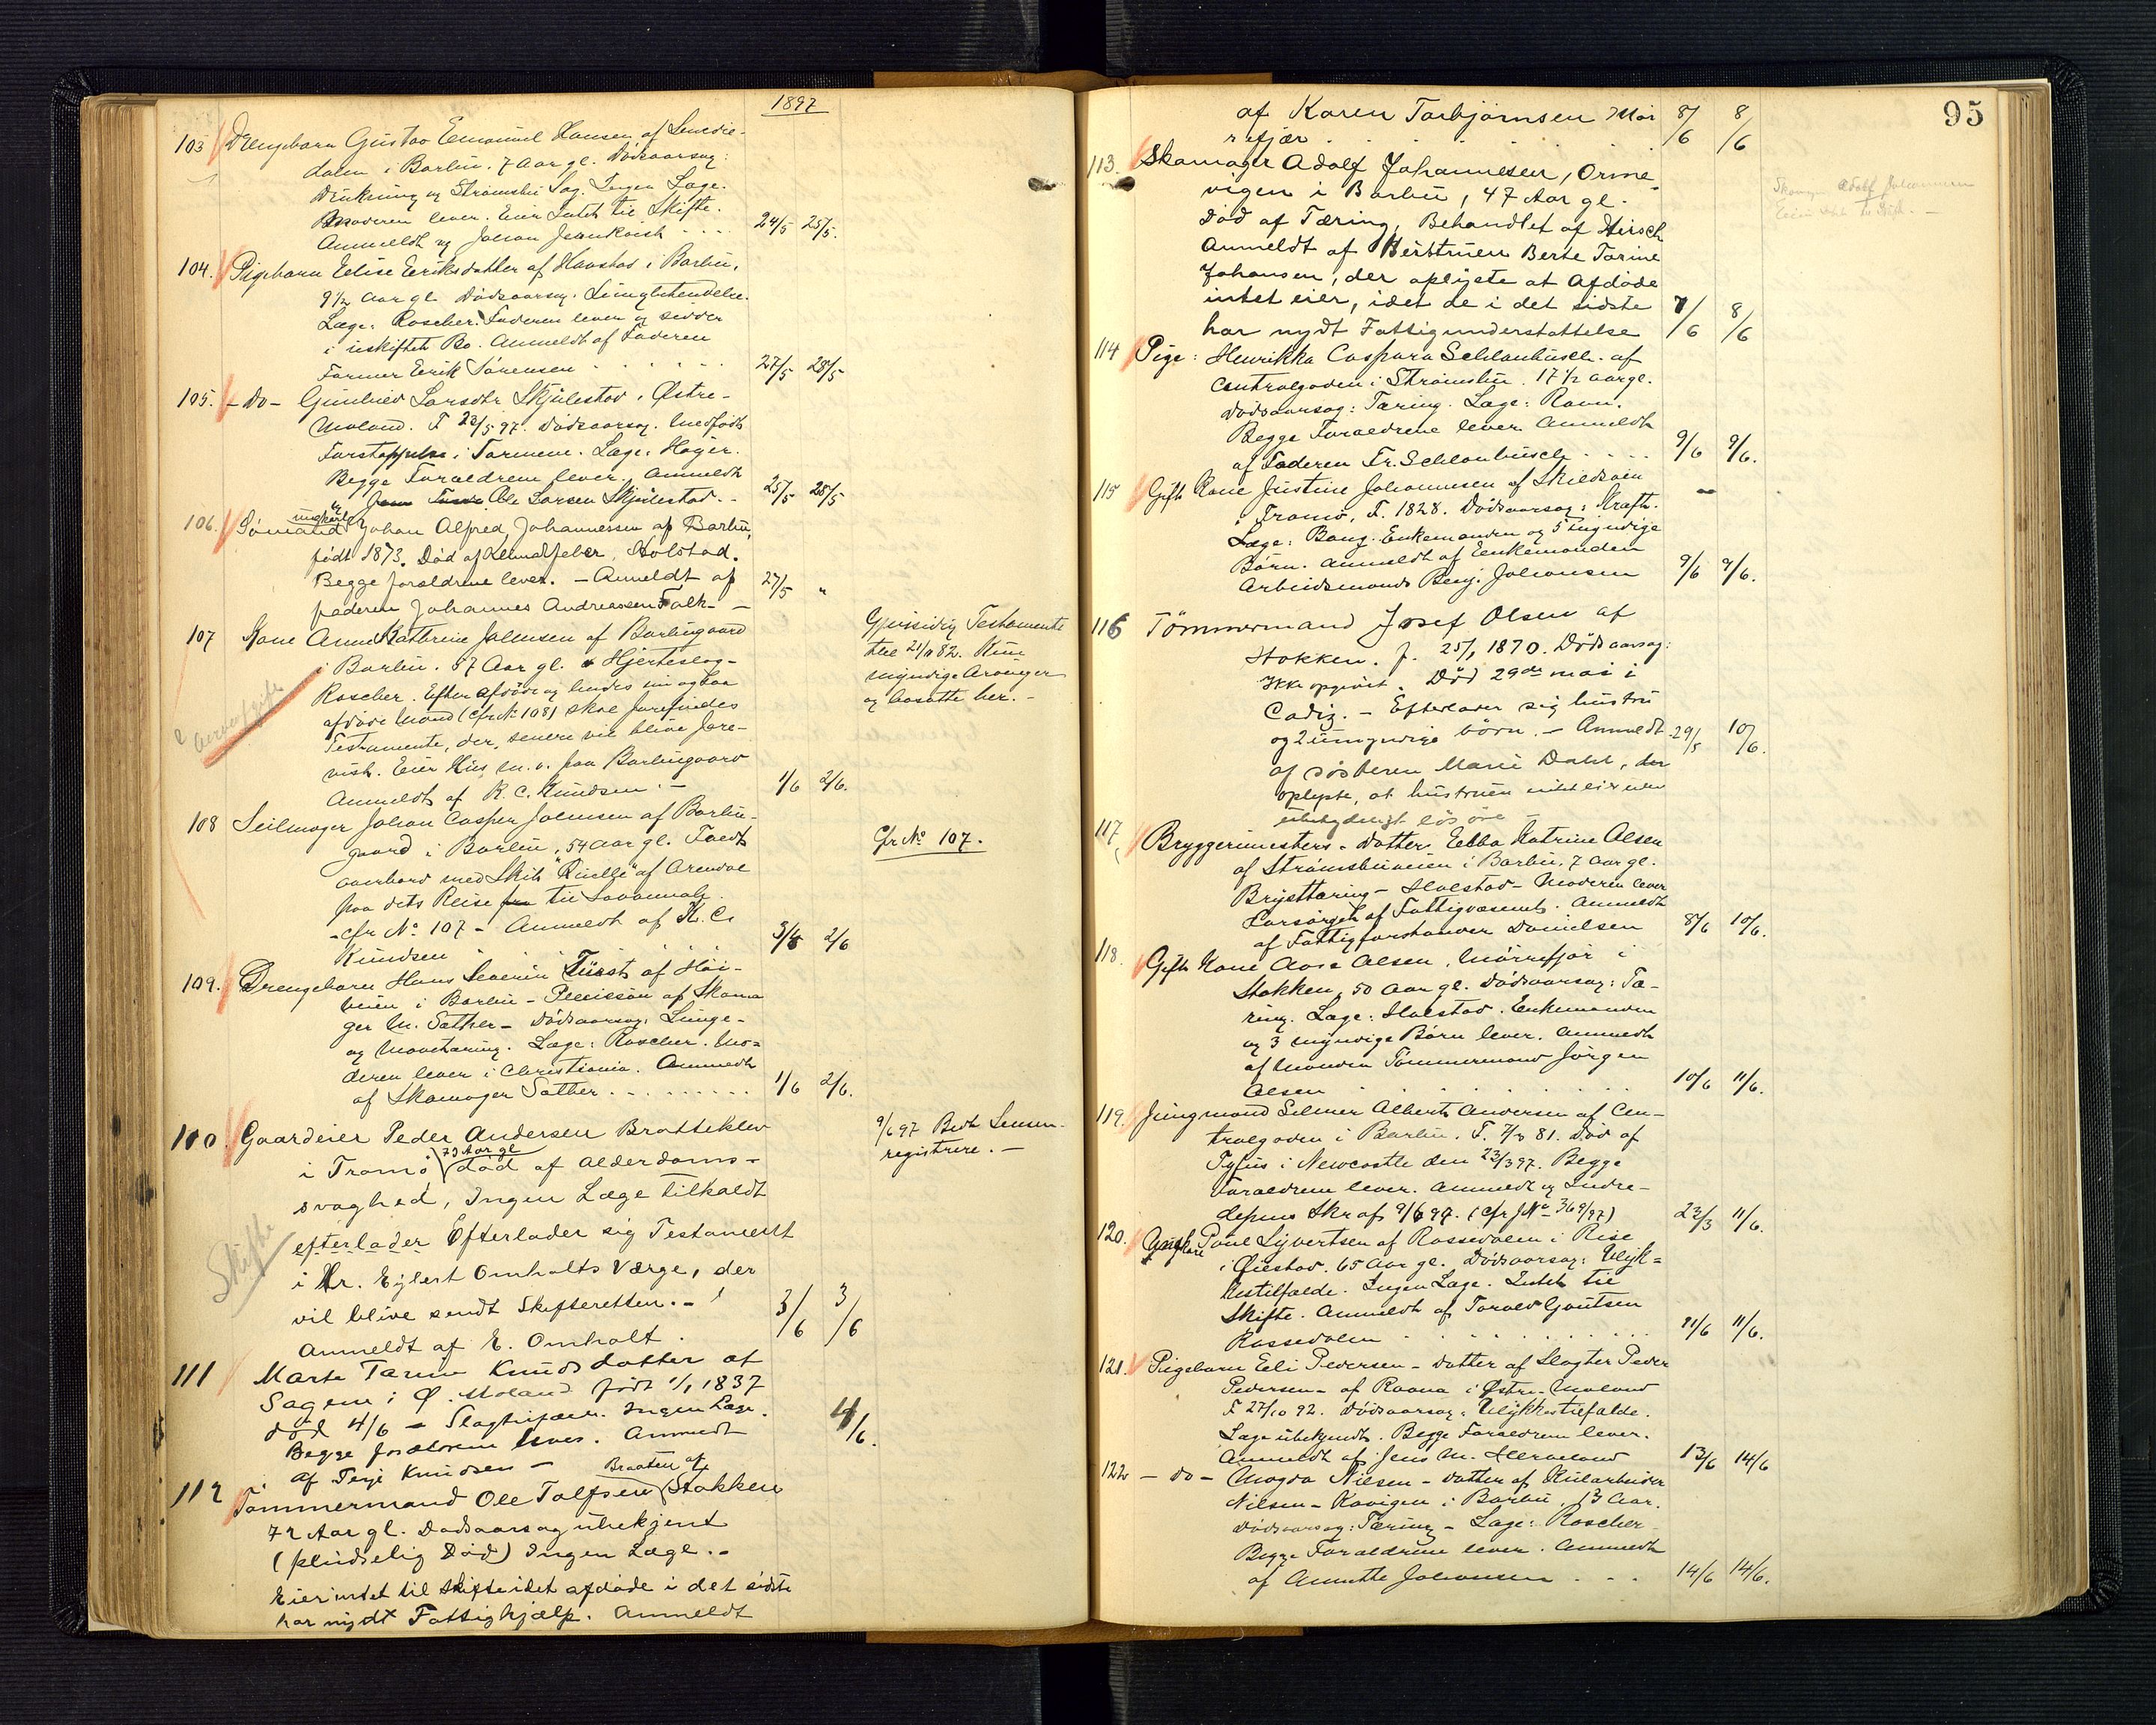 1897
103 Drengebarn Gustav Emanuel Hansen af
dalen i Barbu. 7 Aar gl. Dødsaarsag:
Drukning ug Strømsbu Sag. Ingen Læge.
Moderen lever. Eier Intet til Skifte.
Anmeldt ug Johan 24/5 25/5.
104. Pigebarn Elise Eriksdatter af Havstad i Barbu.
9½ Aar gl. Dødsaarsag: Lungebetendelse.
Læge: Roscher. Faderen lever og sidder
i uskiftet Bo. Anmeldt af Faderen
Former Erik Sørensen 27/5 28/5
105. - do - Gunhild Larsdtr. Skjulestad, Østre-
Moland. F 23/5 97. Dødsaarsag. Medfødt
Forstoppelse i Tarmene. Læge: Høyer.
Begge Forældrene lever. Anmeldt
Ole Larsen Skjulestad. - 25/5 28/5
106. ungkarl
Sømand Johan Alfred Johannessen af Barbu,
født 1873. Død af Klimatfeber, Holstad.
Begge forældrene lever. - Anmeldt af 27/5 "
faderen Johannes Andreassen Falk -
107 Kone Anne Kathrine Jahnsen af Barbugaard
i Barbu. 57 Aar gl. Hjerteslag -
Roscher. Efter Afdøde og hendes nu ogsaa
afdøde Mand (cfr No 108) skal forefindes
Testamente, der senere vil blive fore-
vist. Eier Hus m. v. paa Barbugaard
Anmeldt af K. C. Knudsen. - 1/6 2/6.
Gjensidig Testamente
Kun
myndige Arvinger
og bosatte her. -
108 Seilmager Johan Casper Jahnsen af Barbu-
gaard i Barbu, 54 Aar gl. Faldt
overbord med Skib "Ruelle" af Arendal
paa dets Reise fra til Savannah.
- cfr No 107 - Anmeldt af K. C.
Knudsen 3/4 2/6
Cfr No 107.
109. Drengebarn Hans Severin Furst af Høi-
veien i Barbu - Pleiesøn af Skoma
ger M. Sæther - Dødsaarsag: Lunge-
og Mavetæring. Læge: Roscher. Mo-
deren lever i Christiania. Anmeldt
af Skomager Sæther . . . . . . . . . 1/6 2/6.
110. Gaardeier Peder Andersen Bratteklev
73 Aar gl
i Tromø død af Alderdoms-
svaghed, Ingen Læge tilkaldt
efterlader Efterlader sig Testament
i Hr. Eylert Omholts Værge, der
vil blive sendt Skifteretten. -
Anmeldt af E. Omholt. 3/6 3/6
Skifte
9/6 97 Bedt Lensm.
registrere. -
111 Marte Tarine Knudsdatter af
Sagene i Ø. Moland født 1/1 1837
død 4/6 - Slagtilfælde. Ingen Læge.
Begge forældrene lever. Anmeldt
af Terje Knudsen - 4/6.
112 Braaten af
Tømmermand Ole Tolfsen Stokken
72 Aar gl. Dødsaarsag ubekjent
(pludselig Død) Ingen Læge. -
Eier intet til Skifte idet afdøde i det sidste
har nydt Fattighjælp. Anmeldt
95
af Karen Torbjørnsen Mør
refjær 8/6 8/6
113. Skomager Adolf Johannesen, Orme-
vigen i Barbu, 47 Aar gl.
Død af Tæring, Behandlet af Hirsch
Anmeldt af Hustruen Berte Tarine
Johansen, der oplyste at Afdøde
intet eier, idet de i det sidste
har nydt Fattigunderstøttelse 7/6 8/6
Adolf Johannesen
114 Pige: Henrikka Caspara Schlanbusch. af
Centralgaden i Strømsbu. 17½ Aar gl.
Dødsaarsag: Tæring. Læge: Ravn.
Begge Forældrene lever. Anmeldt
af Faderen Fr. Schlanbusch. . . . 9/6 9/6.
115 Gift Kone Justine Johannesen af Skilsøen
i Tromø, F. 1828. Dødsaarsag: Kræft.
Læge: Bang. Enkemanden og 5 myndige
Børn. Anmeldt af Enkemanden
Arbeidsmand Benj. Johansen 9/6 9/6.
116 Tömmermand Josef Olsen af
Stokken. f. 25/1 1870. Dødsaarsag:
Ikke opgivet. Død 29de mai i
Cadiz. - Efterlader sig hustru
og 2 umyndige børn. - Anmeldt 29/5 10/6.
af søsteren Marie Dahl, der
oplyste, at hustruen intet eier uden
ubetydeligt løsøre
117 Bryggerimesters-datter Ebba Katrine Olsen
af Strømsbuveien i Barbu, 7 Aar gl.
Brysttæring - Holstad - Moderen lever
Forsørget af Fattigvæsenet. Anmeldt
af Fattigforstander Danielsen 8/6 10/6.
118. Gift Kone Aase Olsen, Mørrefjær i
Stokken, 50 Aar gl. Dødsaarsag: Tæ-
ring. Læge: Holstad. Enkemanden
og 3 myndige Børn lever. Anmeldt
af Manden Tømmermand Jørgen
Olsen 10/6 11/6.
119. Jungmand Selmer Albert Andersen af Cen-
tralgaden i Barbu. F. 7/3 81. Død af
Tyfus i Newcastle den 23/3 97. Begge
Forældrene lever. Anmeldt ug Indre-
depms Skr af 9/6 97. (cfr J No 369/97) 23/3 11/6.
120. Paul Syvertsen af Rossedalen i Rise
i Øiestad. 65 Aar gl. Dødsaarsag: Ulyk-
kestilfælde. Ingen Læge. Intet til
Skifte. Anmeldt af Torvald Gautsen
Rossedalen . . . . 11/6 11/6.
121. Pigebarn Eli Pedersen - datter af Slagter Peder
Pedersen - af Raana i Østre Moland
F 27/10 92. Dødsaarsag: Ulykkestilfælde.
Læge ubekjendt. Begge Forældrene lever.
Anmeldt af Jens M. 13/6 14/6
122 - do - Magda Nilsen - datter af Kularbeider
Nilsen - Kavigen i Barbu, 13 Aar.
Dødsaarsag: Tæring - Læge: Roscher
Begge Forældrene lever. Anmeldt
af Annette Johansen . . . 14/6 14/6.